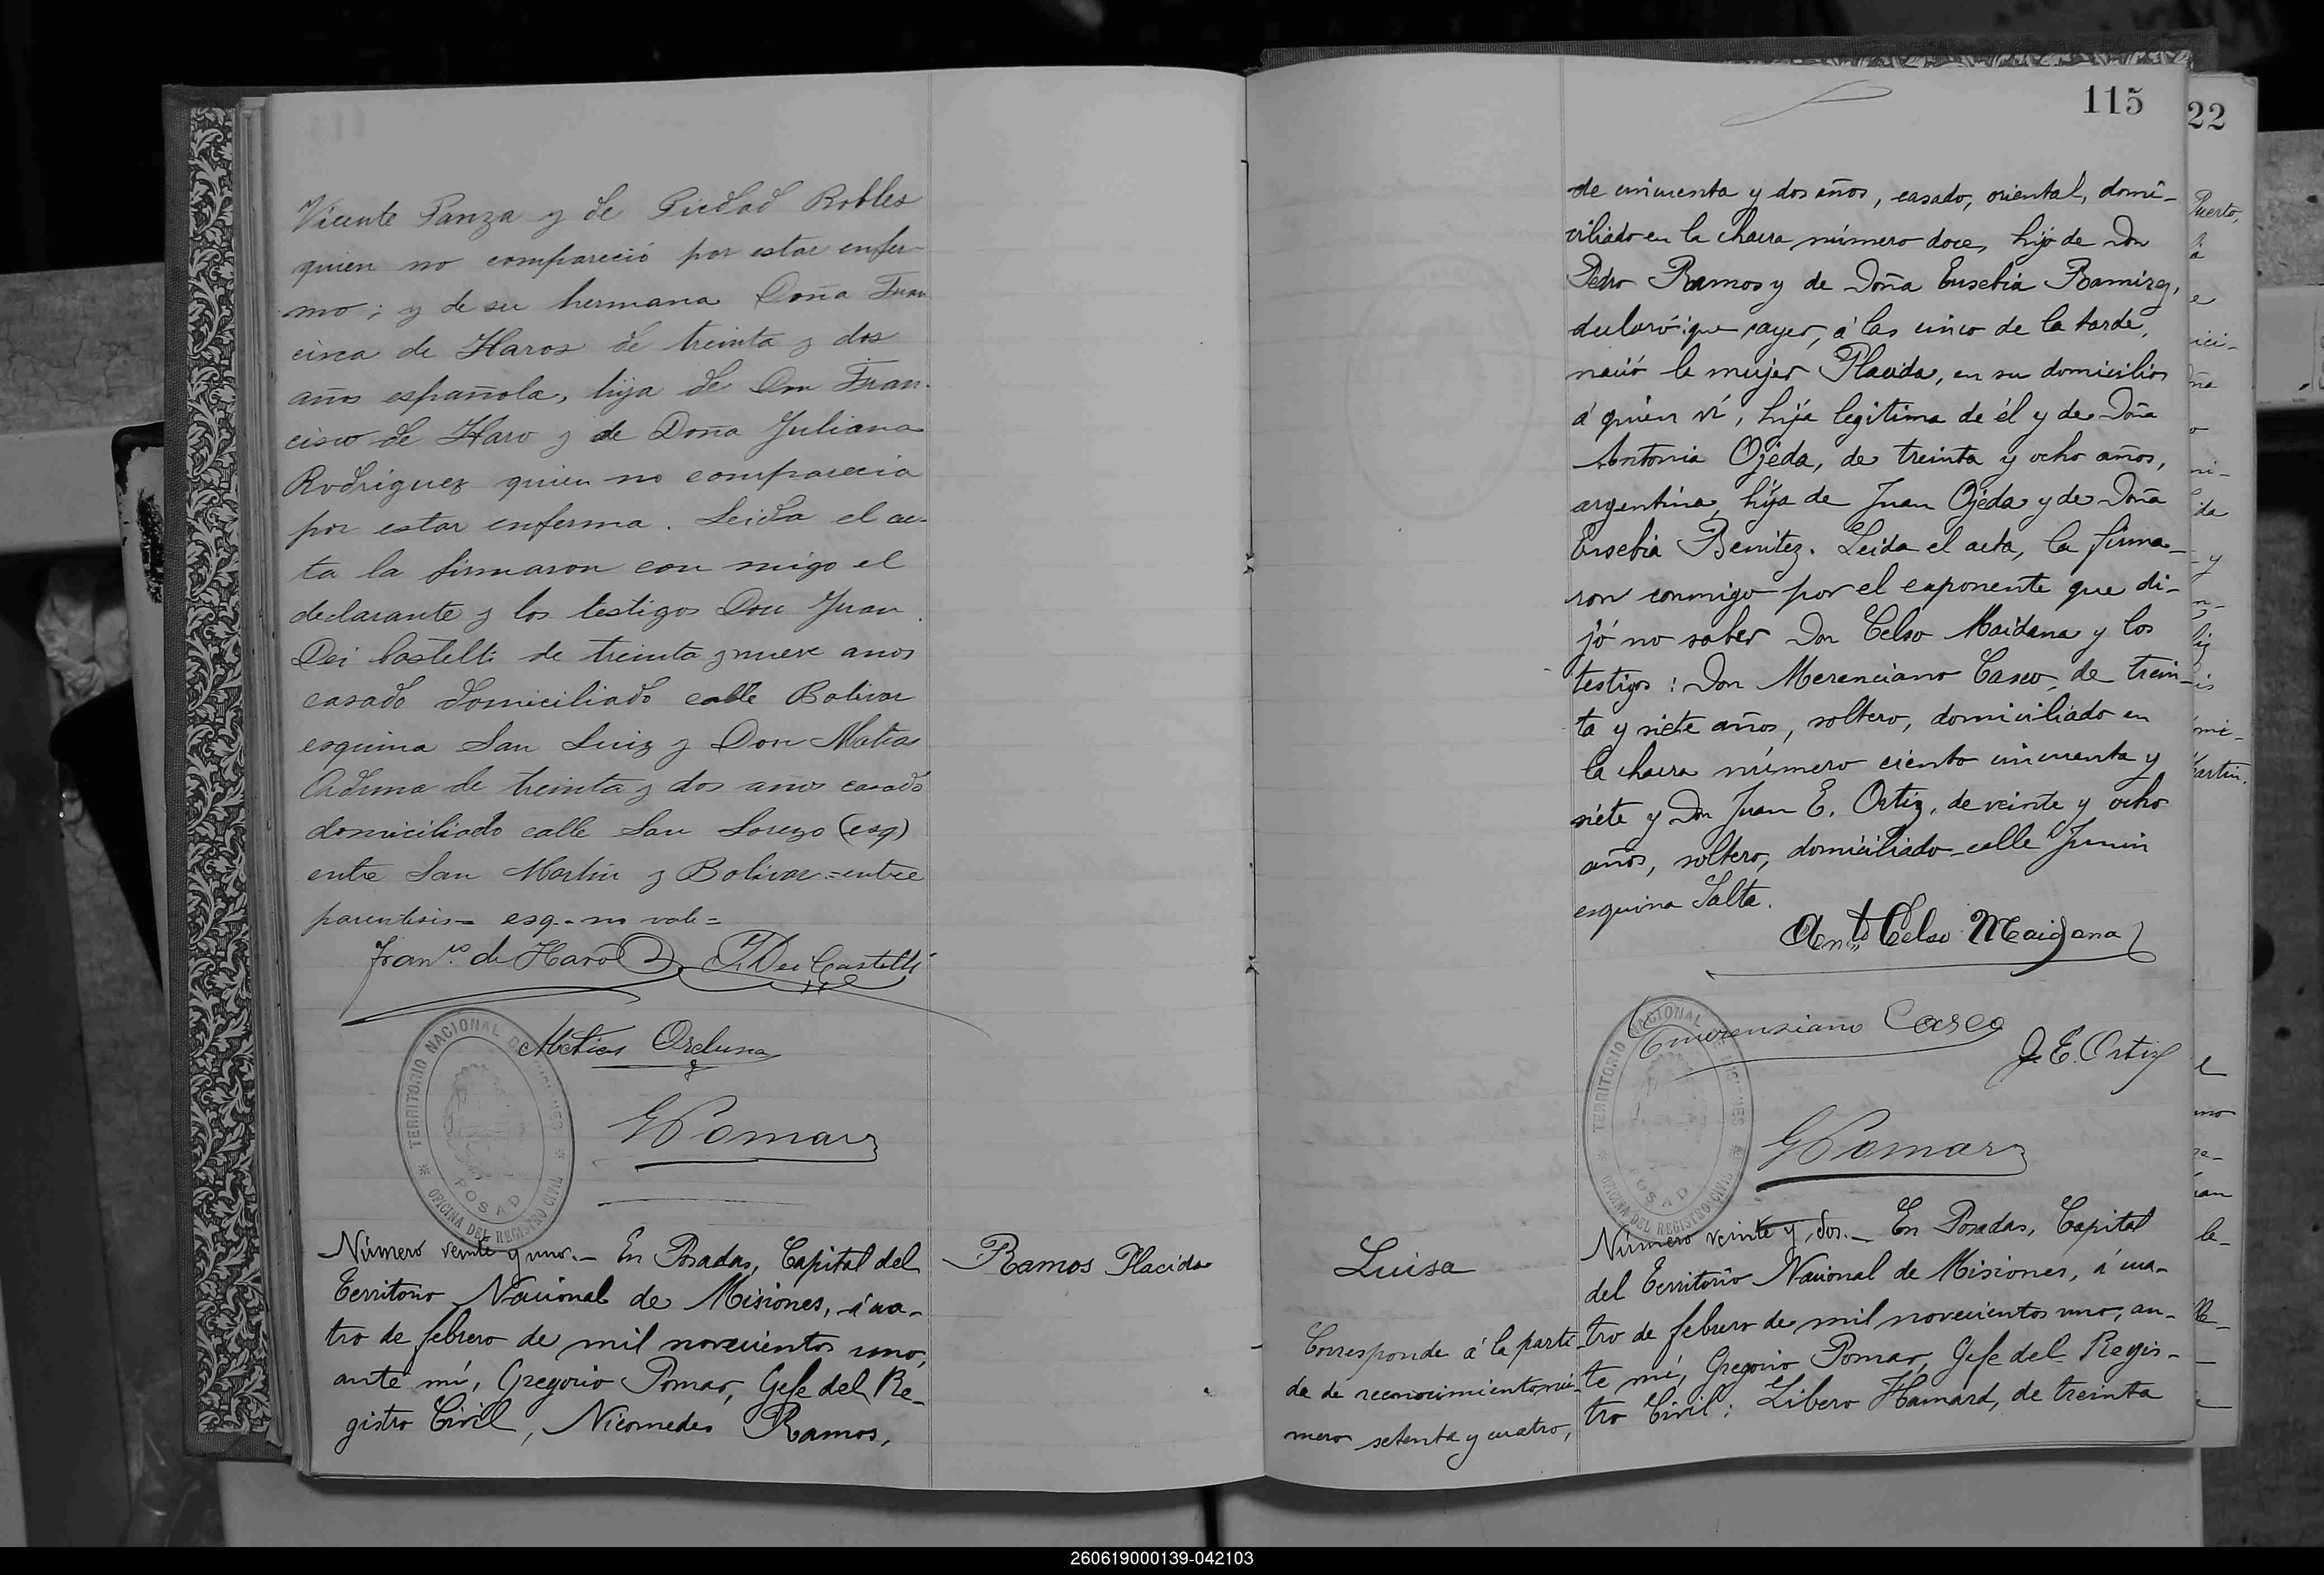 Vicente Panza y de Piedad Robles
quien no compareció por estar enfer
mo; y de su hermana Doña Fran
cisca de Haros de treinta y dos
años española, hija de Don Fran-
cisco de Haro y de Doña Juliana
Rodriguez quien no comparecia
por estar enferma. Leida el ac-
ta la firmaron con migo el
declarante y los testigos Don Juan
Dei Castelli de treinta y nueve anos
casado domiciliado calle Bolivar
esquina San Luiz y Don Matias
Orduna de treinta y dos anos casado
domiciliado calle San Lorenzo (esq)
entre San Martin y Bolivar =entre
parentisis= esq.- no vale=
Franco. de Haro J. Dei Castelli
Matias Orduna
TERRITORIO NACIONAL DE MISIONES
POSAD
OFICINA DEL REGISTRO CIVIL
G Pomar
Número veinte y uno.- En Posadas, Capital del
Territorio Nacional de Misiones, á cua-
tro de febrero de mil novecientos uno,
ante mí, Gregorio Pomar, Gefe del Re-
gistro Civil, Nicomedes Ramos,
Ramos Placida
115
de cincuenta y dos años, casado, oriental, domi-
ciliado en la chacra número doce, hijo de Don
Pedro Ramos y de Doña Eusebia Ramirez,
declaró: que ayer, á las cinco de la tarde,
nació la mujer Placida, en su domicilio
á quien ví, hija legitima de él y de Doña
Antonia Ojeda, de treinta y ocho años,
argentina, hija de Juan Ojeda y de Doña
Eusebia Benitez. Leida el acta, la firma-
ron conmigo por el exponente que di-
jó no saber Don Celso Maidana y los
testigos: Don Merenciano Casco, de trein-
ta y siete años, soltero, domiciliado en
la chacra número ciento cincuenta y
siete y Don Juan E. Ortiz, de veinte y ocho
años, soltero, domiciliado calle Junin
esquina Salta.
Anto Celso Maidana
Emerensiano Casco
J. E. Ortiz
TERRITORIO NACIONAL DE MISIONES
OSAD
OFICINA DEL REGISTRO CIVIL
G Pomar
Luisa
Corresponde á la parti
da de reconocimiento nú-
mero setenta y cuatro,
Número veinte y dos.- En Posadas, Capital
del Territorio Nacional de Misiones, á cua-
tro de febrero de mil novecientos uno, an-
te mí, Gregorio Pomar, Gefe del Regis-
tro Civil: Libero Hamard, de treinta
22
Puerto,
260619000139-042103